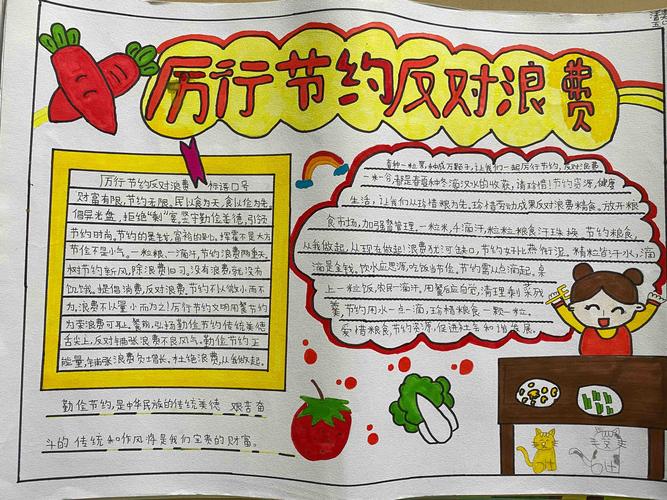 厉行节约反对浪费
厉行节约反对浪费 标语口号
财富有限,节约无限,民以食为天,食以俭为先。
倡导光盘,拒绝"剩"宴,坚守勤俭美德,引领
节约时尚,节约的是钱,富裕的是心,挥霍不是大方
节俭不是小气。一粒粮、一滴汗,节约浪费两重天,
树节约新风,除浪费旧习,没有浪费就没有
饥饿。提倡消费,反对浪费,节约不以微小而不
为,浪费不以量小而为之!厉行节约文明用餐节约
为荣浪费可耻。弘扬勤俭节约传统美德
舌尖上,反对铺张浪费不良风气。勤俭节约正
能量,铺张浪费负增长。杜绝浪费,从我做起。
勤俭节约,是中华民族的传统美德 艰苦奋
斗的 传统 和作风 将是我们宝贵的财富。
春种一粒粟,秋成万颗子,让我们一起厉行节约,反对浪费
生活,让我们从珍惜粮为先,珍惜劳动成果反对浪费精食。放开粮
食市场,加强督管理。一粒米,千滴汗,粒粒粮食汗珠换 节约粮食,
从我做起,从现在做起!浪费犹河缺口,节约好比燕衔泥。精粒皆汗水,滴
滴是金钱。饮水应思源,吃饭当节俭。节约需从点滴起。桌
上一粒饭,农民一滴汗,用餐后应自觉,清理剩菜残
羹,节约用水一点一滴,珍惜粮食一颗一粒。
爱惜粮食,节约资源,促进社会和谐发展。